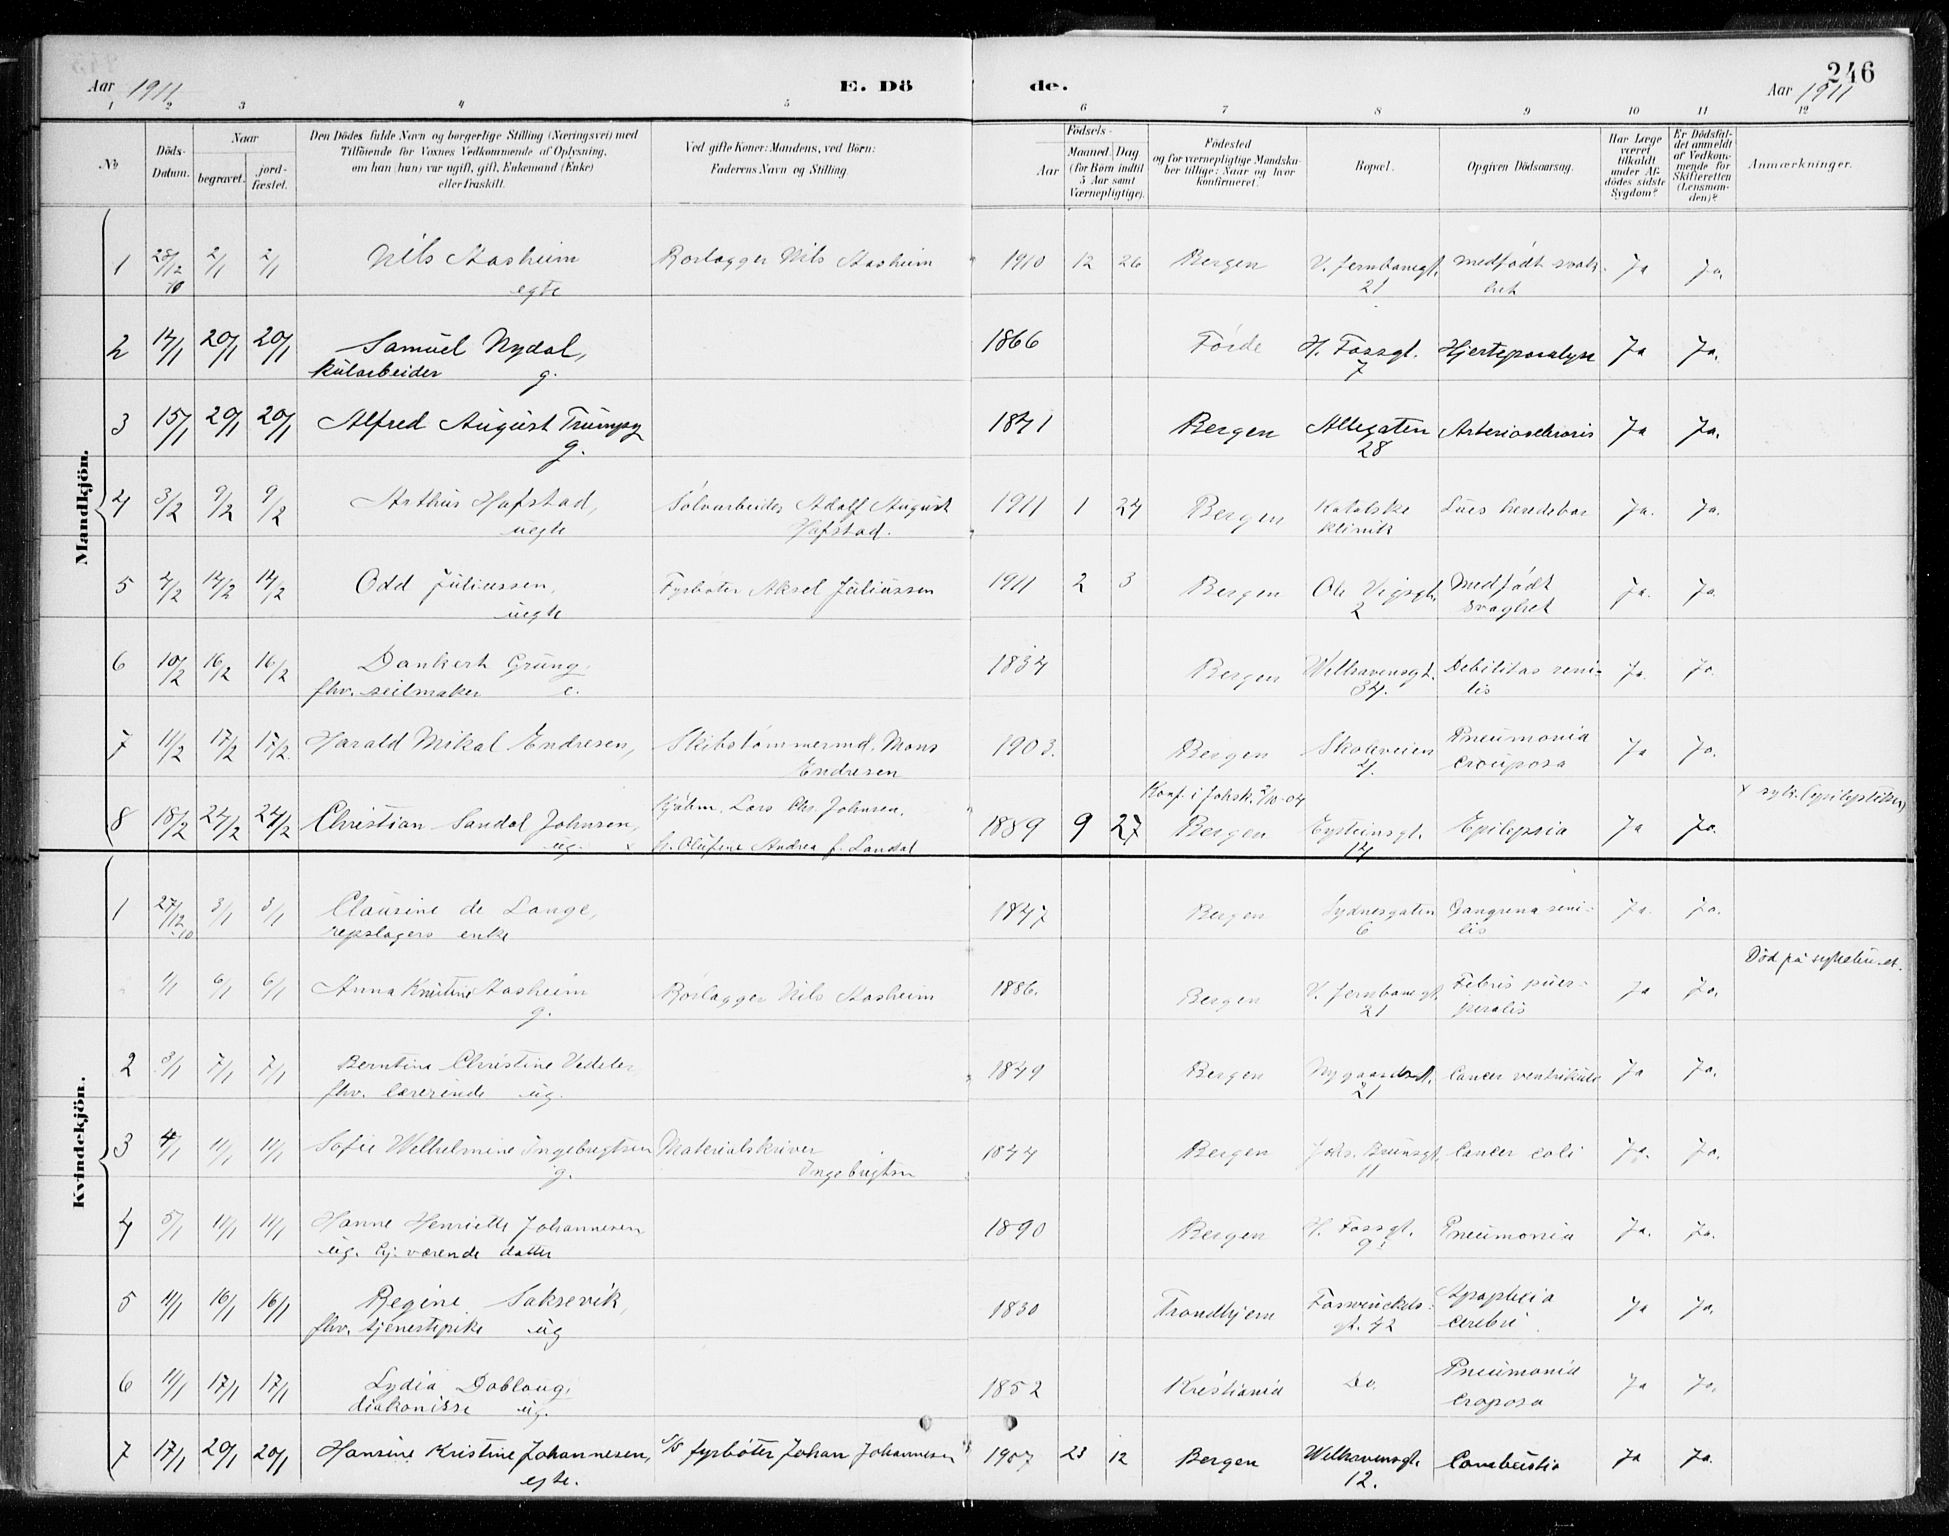 246
Aar 1911
E. Dö
de.
Aar 1911
1 2 3 4 5 6 7 8 9 10 11 12
No
Döds-
Datum.
Naar
begravet.
jord-
fæstet.
Den Dödes fulde Navn og borgerlige Stilling (Næringsvei) med
Tilföiende for Voxnes Vedkommende af Oplysning,
om han (hun) var ugift, gift, Enkemand (Enke)
eller fraskilt.
Ved gifte Koner: Mandens, ved Börn:
Faderens Navn og Stilling.
Födsels-
Aar
Maaned
Dag
(for Börn indtil
5 Aar samt
Værnepligtige).
Födested
og for værnepligtige Mandska-
ber tillige: Naar og hvor
konfirmeret.
Bopæl.
Opgiven Dödsaarsag.
Har Læge
været
tilkaldt
under Af-
dödes sidste
Sygdom?
Er Dödsfal-
det anmeldt
af Vedkom-
mende for
Skifteretten
(Lensman-
den)?
Anmærkninger.
Mandkjön.
1 28/12 2/1 2/1 Nils Aasheim Rørlægger Nils Aasheim 1910 12 26 Bergen V. Jernbanegt. medfødt svak- Ja Ja.
10 egte 21 het
2 14/1 20/1 20/1 Samuel Nydal, 1866 Førde H. Fossgt. Hjerteparalyse Ja Ja.
kularbeider g. 7
3 15/1 20/1 20/1 Alfred August Trumpy 1841 Bergen Allegaten Arteriosclerosis Ja Ja.
g. 28
4 3/2 9/2 9/2 Arthur Hafstad, Sølvarbeider Adolf August 1911 1 24 Bergen Katolske Lues Ja. Ja.
uegte Hafstad. klinik
5 4/2 14/2 14/2 Odd Juliussen, Fyrbøter Aksel Juliussen 1911 2 3 Bergen Ole Vigsgt. Medfødt Ja. Ja.
uegte 2 svaghet
6 10/2 16/2 16/2 Dankert Grung, 1834 Bergen Welhavensgt. Debilitas seni- Ja. Ja.
fhv. seilmaker e. 34. lis
7 11/2 17/2 17/2 Harald Mikal Endresen, Skibstømmermd. Mons 1903. Bergen Skoleveien Pneumonia Ja Ja.
Endresen 4. crouposa
Konf. i Johsk. 2/10-04
8 18/2 24/2 24/2 Christian Sandal Johnsen, Kjøbm. Lars Chr. Johnsen. 1889 9 27 Bergen Eysteinsgt. Epilepsia Ja Ja.
ug. x h. Olufine Andrea f. Sandal 14
Kvindekjön.
1 27/12 3/1 3/1 Clausine de Lange, 1847 Bergen Sydnesgaten Gangrena seni- Ja. Ja.
10 repslagers enke 6 lis
Død på sykehuset.
1/1 6/1 6/1 Anna Kristine Aasheim Rørlægger Nils Aasheim 1886. Bergen V. Jernbanegt. Febris puer- Ja Ja.
g. 21 peralis
2 3/1 7/1 7/1 Berntine Christine Vedeler 1849 Bergen Nygaardsgt. Cancer ventrikule Ja Ja.
fhv. lærerinde ug. 21
3 4/1 11/1 11/1 Sofie Welhelmine Ingebrigtsen Materialskriver 1844 Bergen Johs. Brunsgt. Cancer coli Ja. Ja.
g. Ingebrigtsen 11
4 5/1 11/1 11/1 Hanne Henriette Johannesen 1890 Bergen H. Fossgt. Pneumonia Ja. Ja.
ug. hj. værende datter 9
5 11/1 16/1 16/1 Regine Saksevik, 1830 Trondhjem Fosswinckels- Apoplexia Ja Ja.
fhv. tjenestepike ug gt. 42 cerebri
6 11/1 17/1 17/1 Lydia Dobloug, 1852 Kristiania Do. Pneumonia Ja Ja.
diakonisse ug. croposa
7 17/1 20/1 20/1 Hansine Kristine Johannesen, fyrbøter Johan Johannesen 1907 23 12 Bergen Welhavensgt. Combustio Ja Ja.
egte. 12.